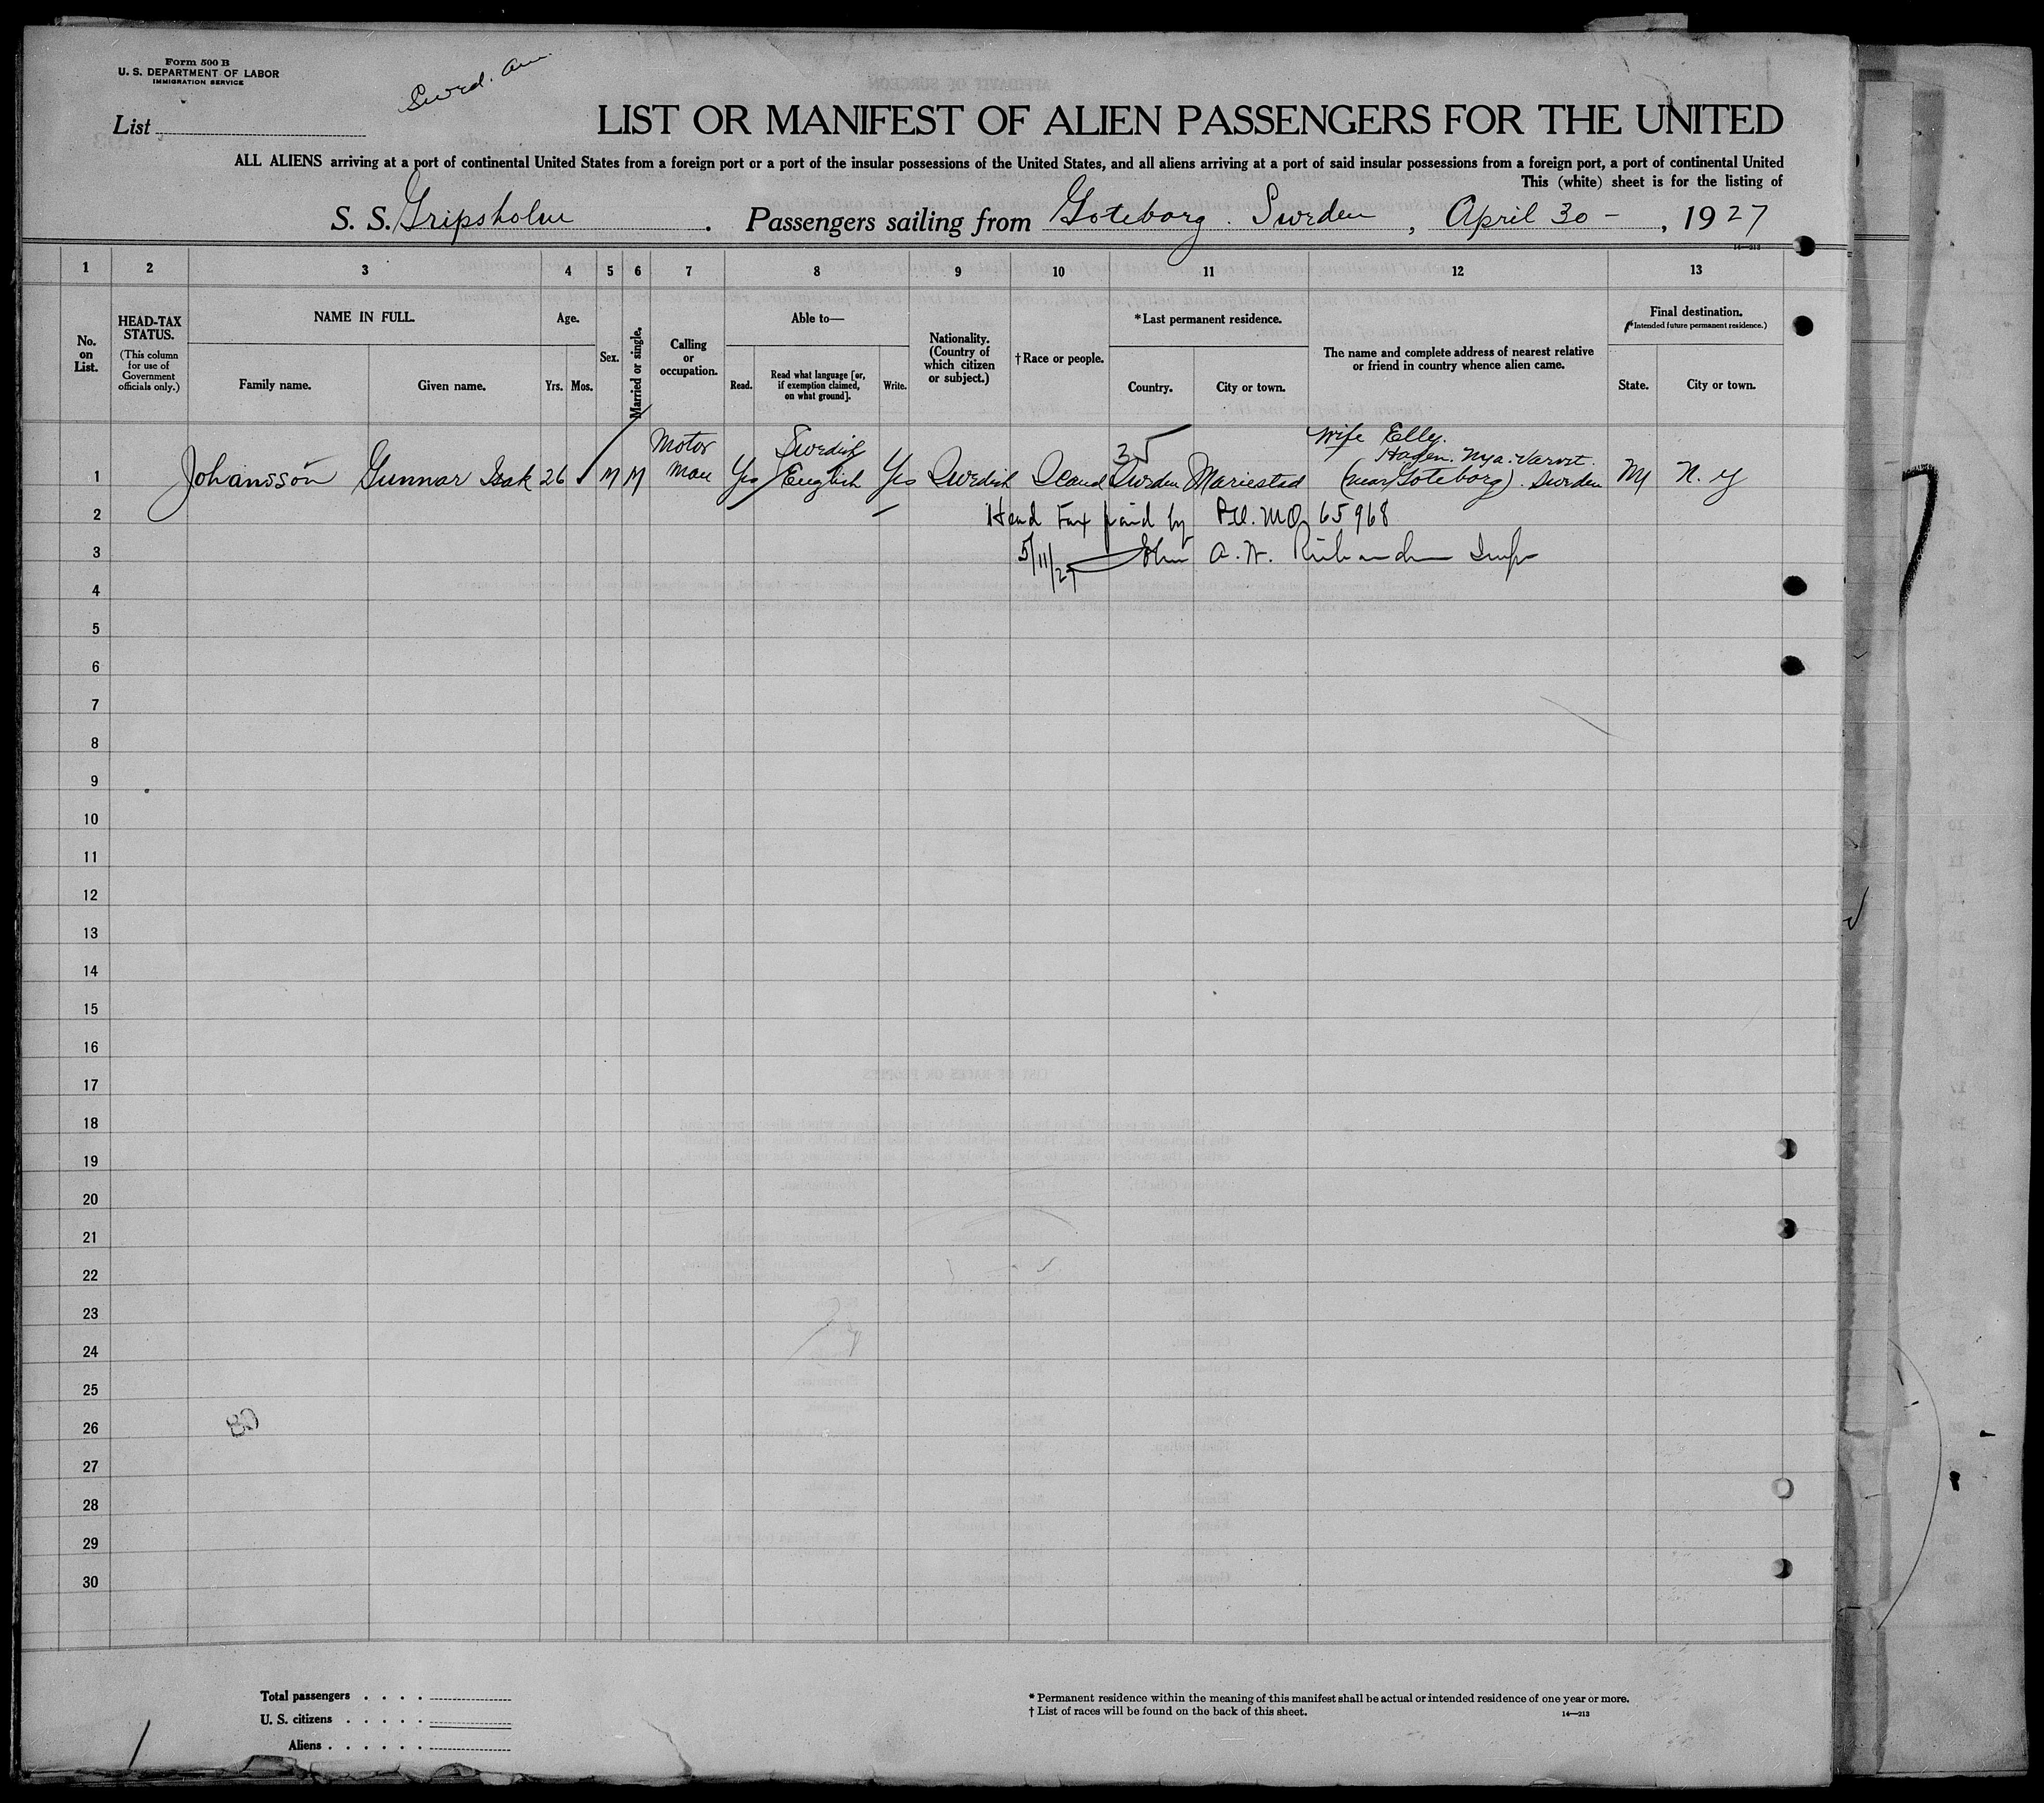 Form 500 B
U. S. DEPARTMENT OF LABOR
IMMIGRATION SERVICE
Swed. Am
List
LIST OR MANIFEST OF ALIEN PASSENGERS FOR THE UNITED
ALL ALIENS arriving at a port of continental United States from a foreign port or a port of the insular possessions of the United States, and all aliens arriving at a port of said insular possessions from a foreign port, a port of continental United
This (white) sheet is for the listing of
S. S. Gripsholm . Passengers sailing from Goteborg . Sweden , April 30 - , 1927
14—213
1 2 3 4 5 6 7 8 9 10 11 12 13
No. on List.
HEAD-TAX STATUS.
(This column for use of Government officials only.)
NAME IN FULL.
Family name. Given name.
Age.
Yrs. Mos.
Sex.
Married or single.
Calling or occupation.
Able to—
Read. Read what language [or, if exemption claimed, on what ground]. Write.
Nationality. (Country of which citizen or subject.)
† Race or people.
* Last permanent residence.
Country. City or town.
The name and complete address of nearest relative or friend in country whence alien came.
Final destination.
(* Intended future permanent residence.)
State. City or town.
Motor Swedish 35 Wife Elly.
Hagen. Nya. Varvet.
1 Johansson Gunnar Isak 26 M M Man Yes English Yes Swedish Scand Sweden Mariestad (near Goteborg). Sweden NY N. Y
2 Head Tax paid by M.O. 65968
3 5/11/27 John A. W. Richardson Insp
4
5
6
7
8
9
10
11
12
13
14
15
16
17
18
19
20
21
22
23
24
25
26
27
28
29
30
Total passengers . . . .
U. S. citizens . . . . .
Aliens . . . . . .
* Permanent residence within the meaning of this manifest shall be actual or intended residence of one year or more.
† List of races will be found on the back of this sheet.
14—213